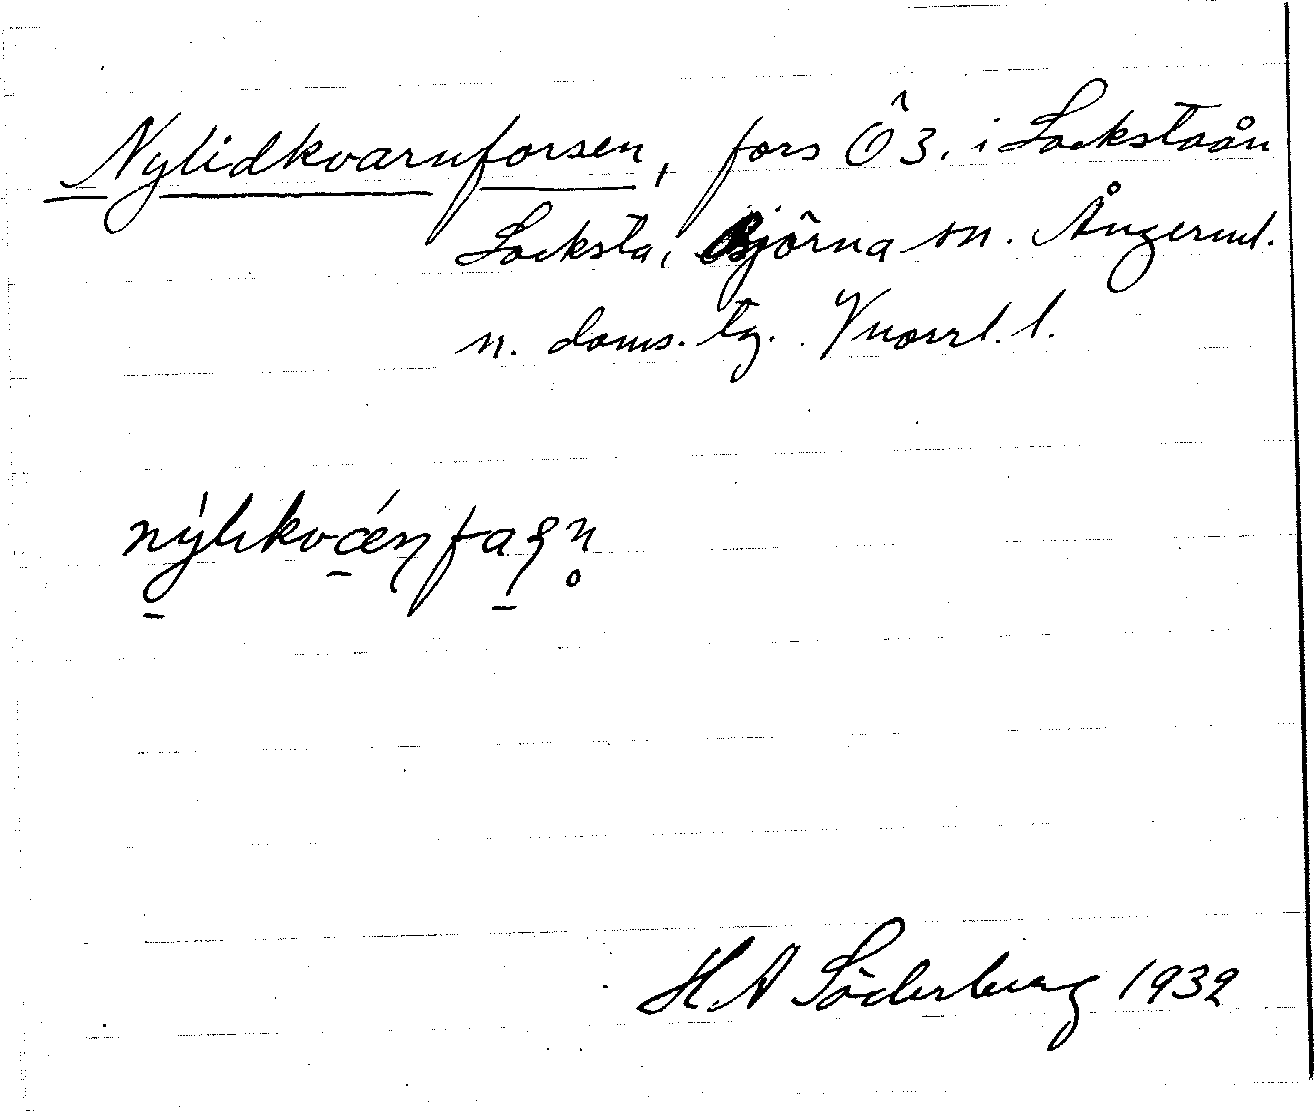 Nylidkvarnforsen, fors Ô3. i Lockstaån
Locksta, Björna sn. Ångerml.
n. doms. tg. Vnorrl. l.
nýlıkvǽnfaşn̥
H A Söderberg 1932